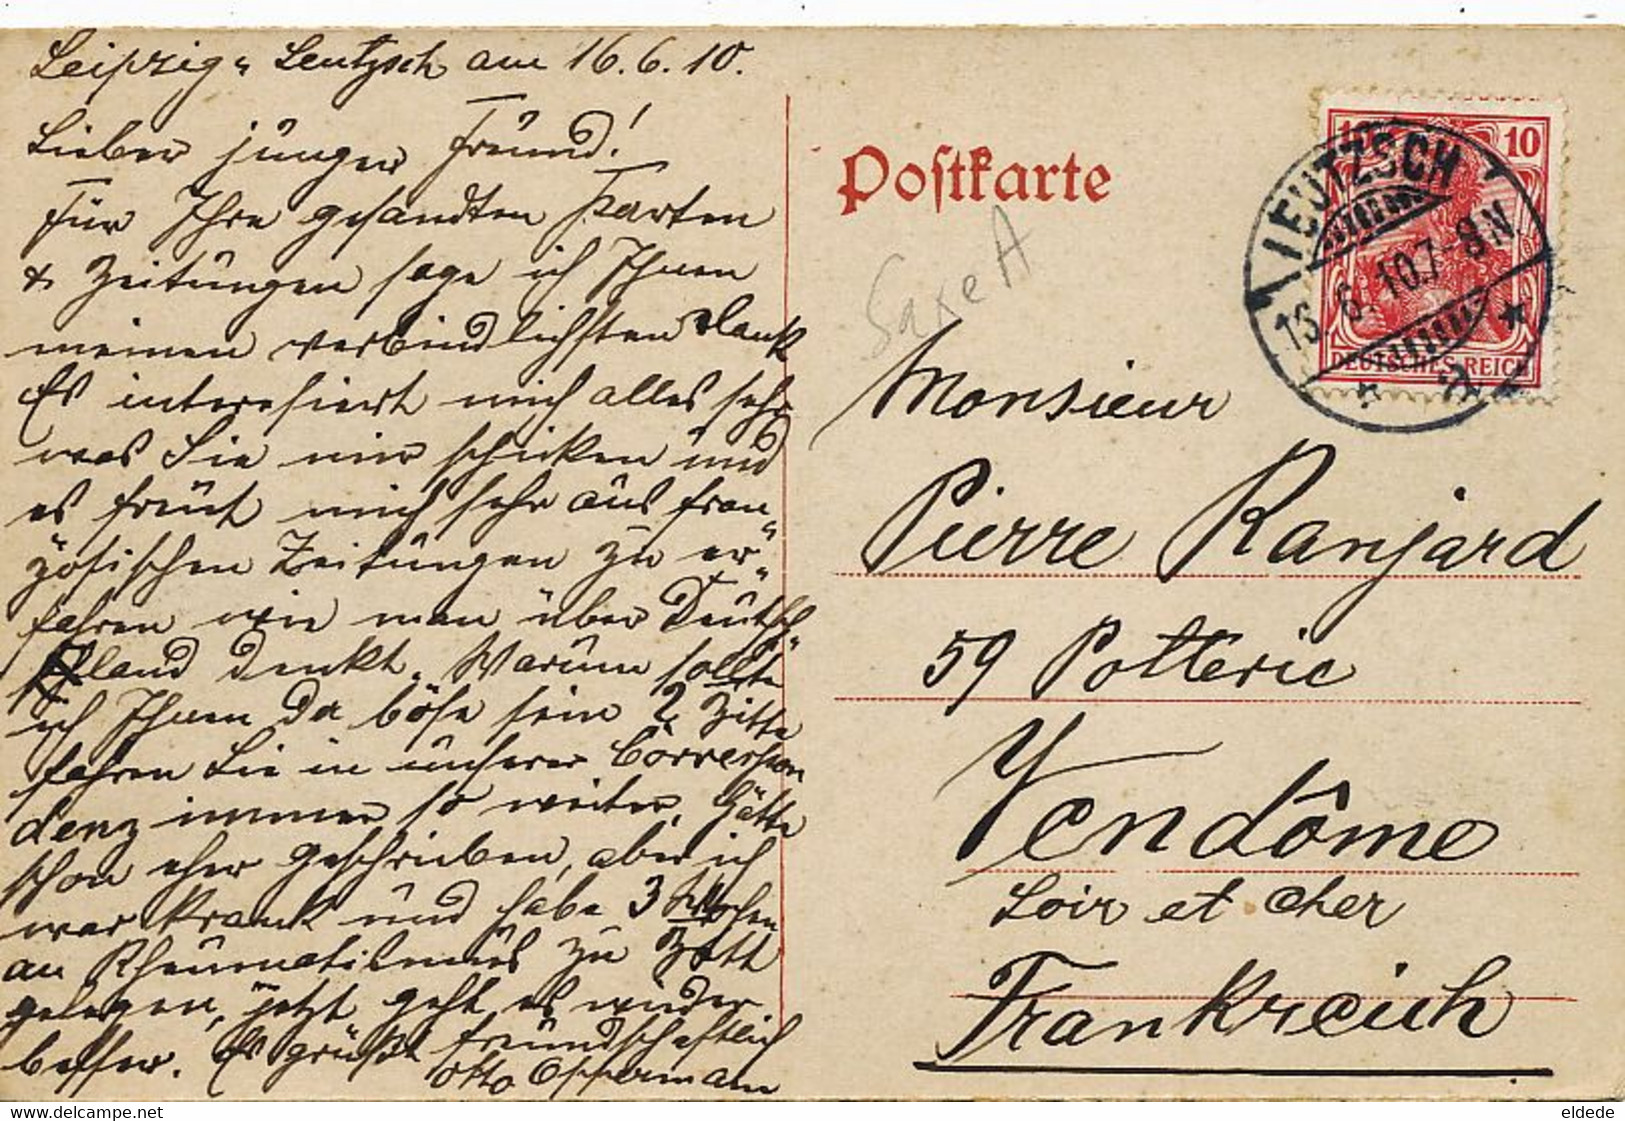 Leipzig-Leutzsch am 16.6.10.
Lieber junger Freund!
Für Ihre gesandten Karten
& Zeitungen sage ich Ihnen
meinen verbindlichsten Dank
Es interesiert mich alles sehr
was Sie mir schicken und
es freut mich sehr aus fran-
zösischen Zeitungen zu er-
fahren wie man über Deutsch-
land denkt. Warum sollte
ich Ihnen da böse sein? Bitte
fahren Sie in unserer Correspon
denz immer so weiter. Hätte
schon eher geschrieben, aber ich
war krank und habe 3 Wochen
an Rheumatismus zu Bett
gelegen, jetzt geht es wieder
besser. Es grüßt freundschaftlich
Otto Oppermann
Postkarte
Saxe A
10 10
DEUTSCHES REICH
LEUTZSCH
16.6.10.7-8N.
* a *
Monsieur
Pierre Ranjard
59 Potterie
Vendôme
Loir et Cher
Frankreich
www.delcampe.net
eldede